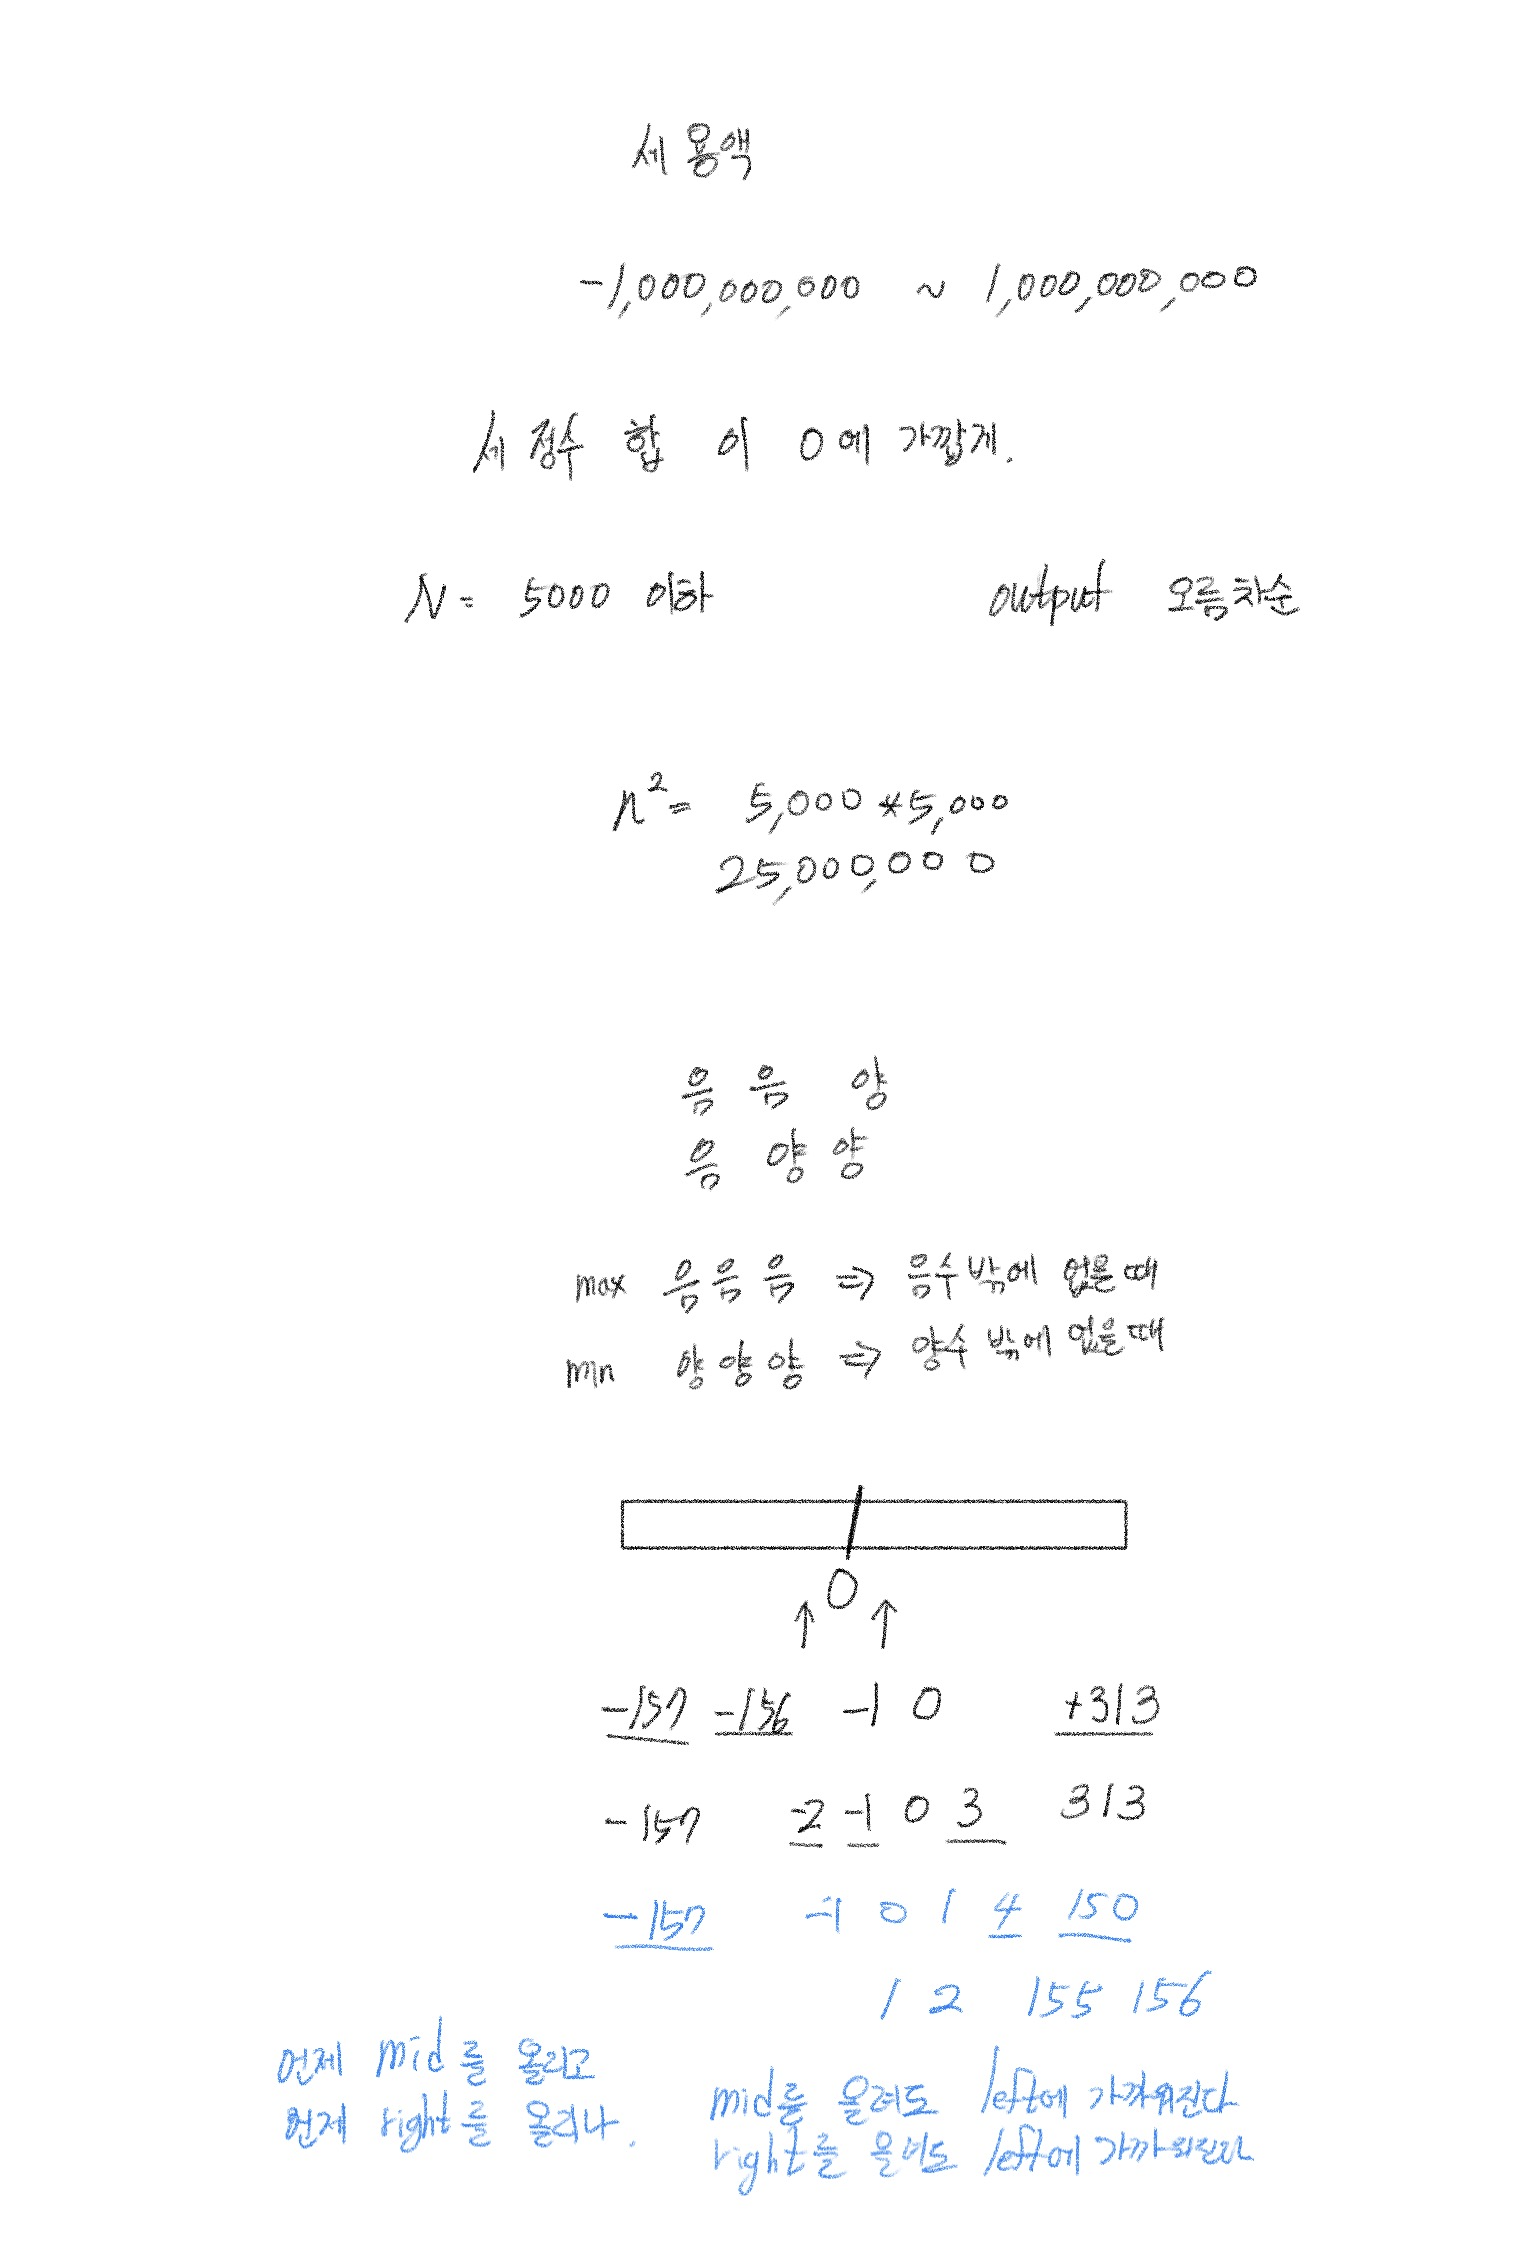 세 용액
-1,000,000,000 ~ 1,000,000,000
세 정수 합 이 0에 가깝게.
N = 5000 이하 output 오름차순
n² = 5,000 * 5,000
25,000,000
음 음 양
음 양 양
max 음 음 음 ⇒ 음수밖에 없을때
min 양 양 양 ⇒ 양수 밖에 없을때
0
↑ ↑
-157 -156 -1 0 +313
-157 -2 -1 0 3 313
-157 -1 0 1 4 150
1 2 155 156
언제 mid를 올리고
언제 right를 올리나.
mid를 올려도 left에 가까워진다
right를 올려도 left에 가까워진다